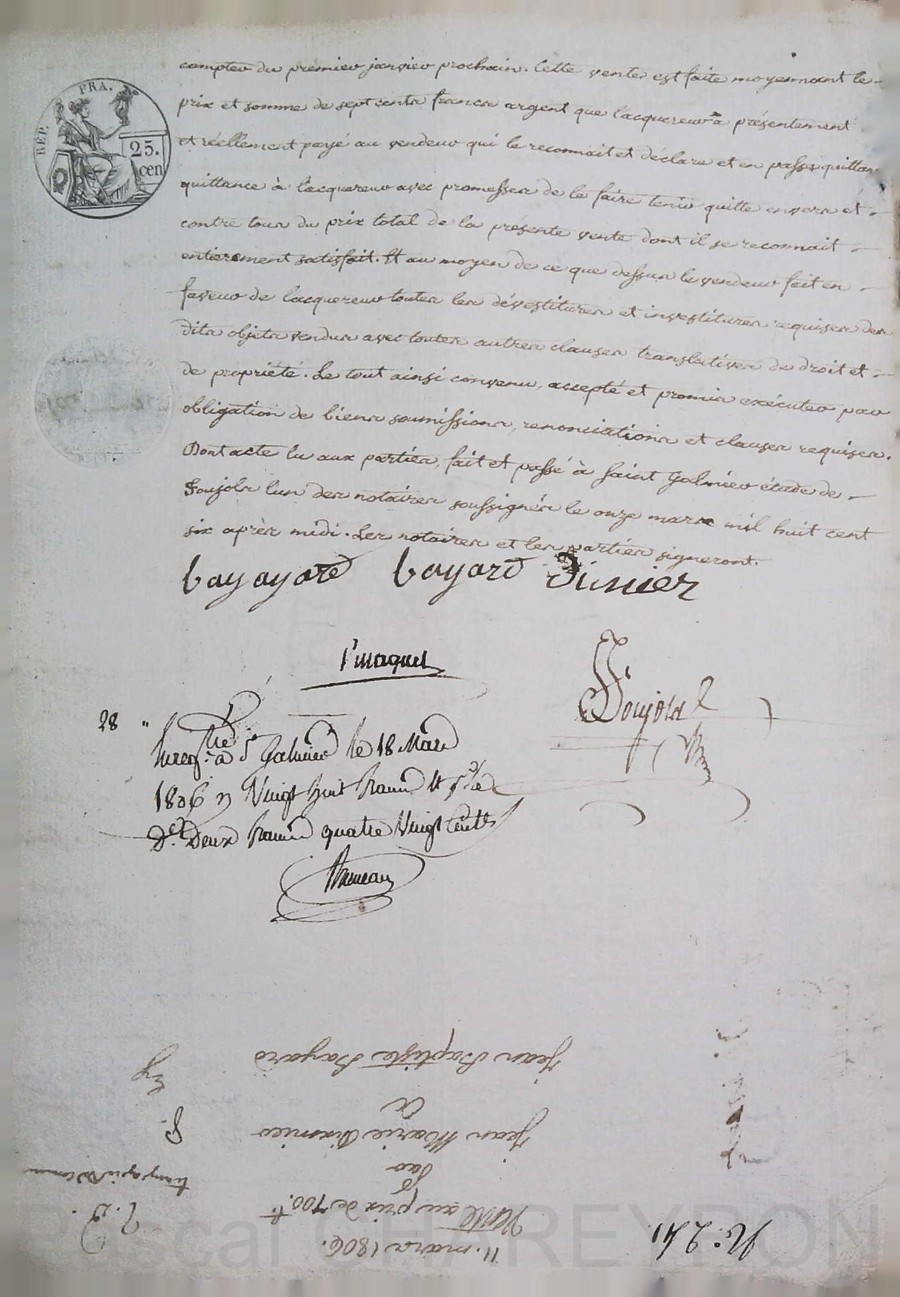 RÉP. FRA.
25.
cen
compter du premier janvier prochain. Cette vente est faite moyennant le
prix et somme de sept cents francs argent que l'acquereur a présentement
et réellement payé au vendeur qui le reconnait et déclare et en passe quittan
quittance à l'acquereur avec promesses de le faire tenir quitte envers et
contre tous du prix total de la présente vente dont il se reconnait
entièrement satisfait. Et au moyen de ce que dessus le vendeur fait en
faveur de l'acquereur toutes les dévestitures et investitures requises des
dits objets vendus avec toutes autres clauses translatives de droit et
de propriété. Le tout ainsi convenu, accepté et promis exécuter par
obligation de biens soumissions, renonciations et clauses requises.
Dont acte lu aux parties, fait et passé à Saint Galmier étude de
Soujols l'un des notaires soussignés le onze mars mil huit cent
six après midi. Les notaires et les parties signeront.
bayard Dimier
Soujols
28
Enreg.tré à St Galmier le 18 Mars
1806 Vingt huit francs
Deux francs quatre Vingt
11. mars 1806.
Vente au prix de 700.
par
Jean Marie Dimier
à
Jean Baptiste Bayard
N.° 241
Pascal CHAREYRON